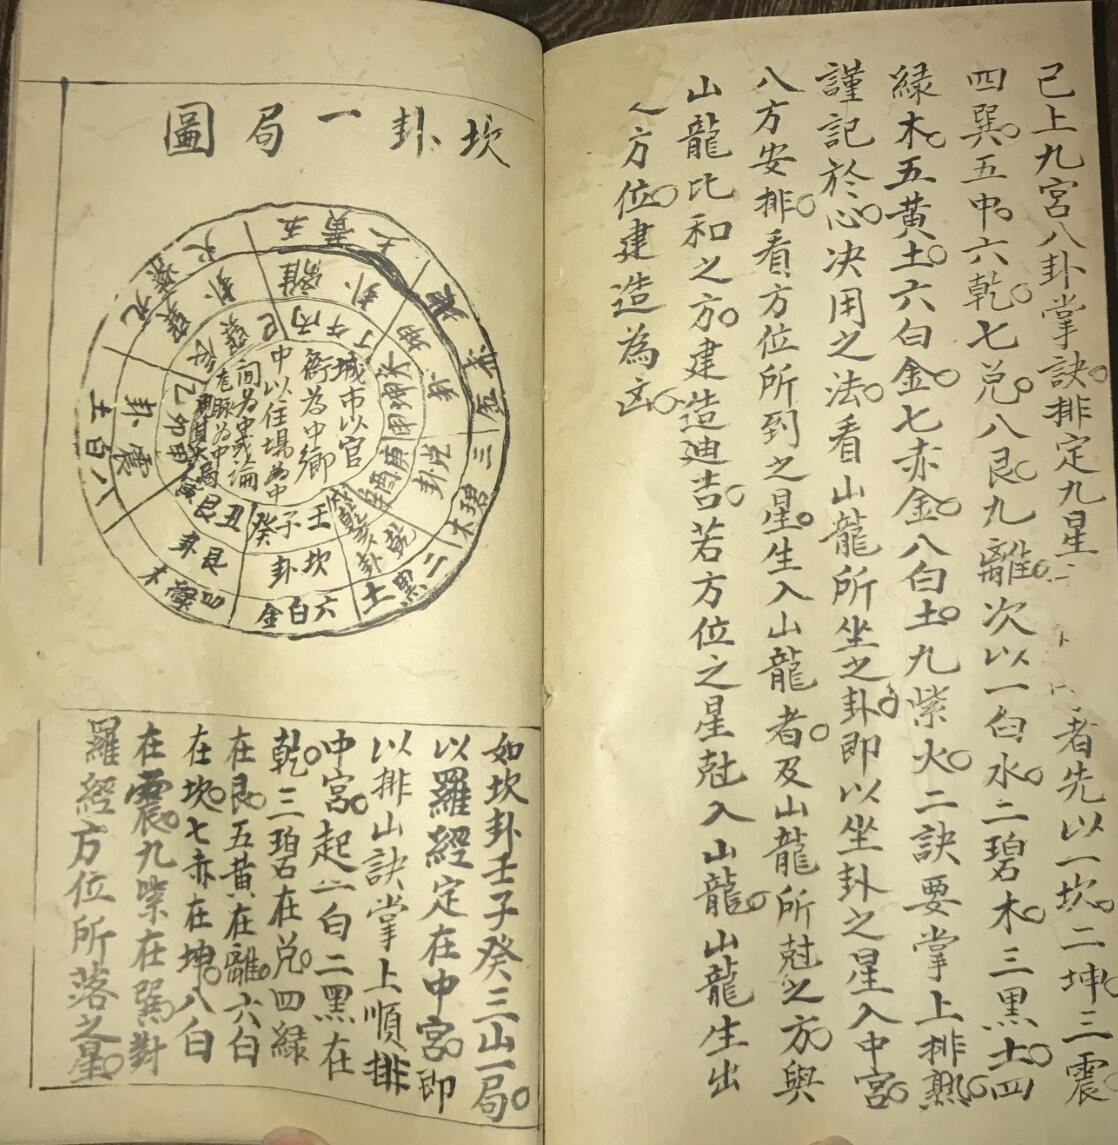 己上九宮八卦掌訣排定九星者先以一坎二坤三震
四巽五中六乾七兌八艮九離次以一白水二碧木三黑土四
緑木五黄土六白金七赤金八白土九紫火二訣要掌上排熟
謹記於心决用之法看山龍所坐之卦即以坐卦之星入中宮
八方安排看方位所到之星生入山龍者及山龍所尅之方與
山龍比和之方建造迪吉若方位之星尅入山龍山龍生出
之方位建造為凶
坎卦一局圖
五黄土
九紫火
八白土
四緑木
六白金
二黑土
三碧木
離卦
巽卦
震卦
艮卦
坎卦
乾卦
兌卦
丁午丙
乙卯甲
壬子癸
城市以官
衙為中鄉
中以住場為中
如坎卦壬子癸三山一局
以羅經定在中宮即
以排山訣掌上順排
中宮起一白二黑在
乾三碧在兌四緑
在艮五黄在離六白
在坎七赤在坤八白
在震九紫在巽對
羅經方位所落之星